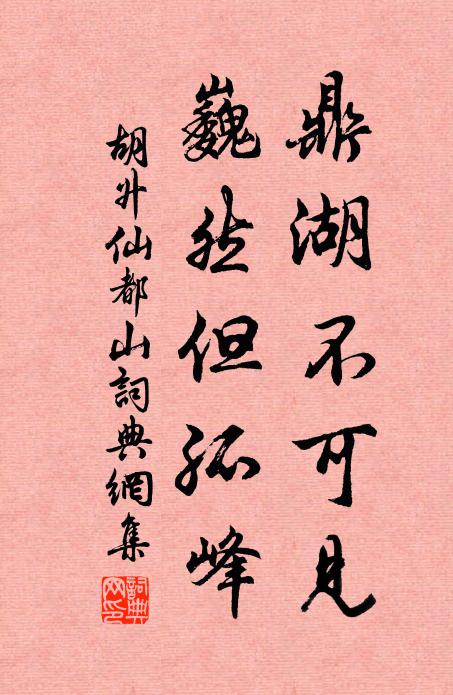 鼎湖不可見
巍然但孤峰
胡升仙都山詞典網集
詞典網印